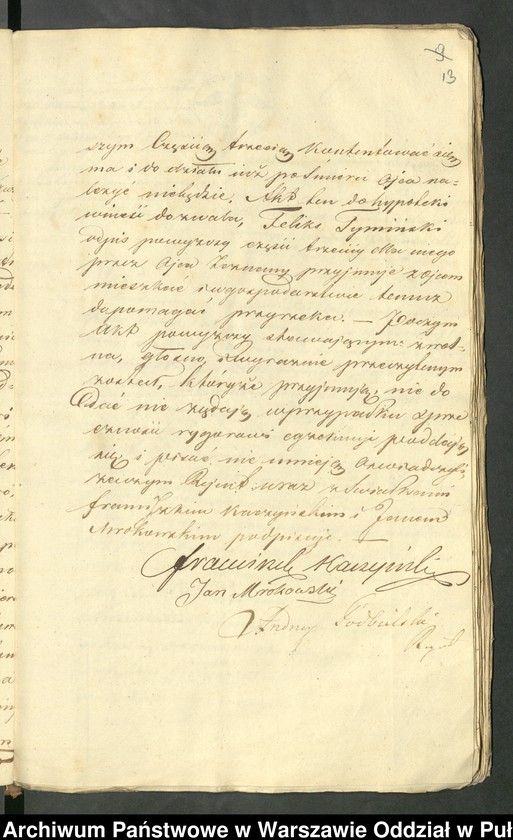 9
13
szym Częściią trzecią kontentować się
ma i do działu iuż po śmierci Ojca na-
leżyć niebędzie. Akt ten do hypoteki
wnieść dozwala, Feliks Tymiński
odpis powyższy części trzeciey dla niego
przez Ojca zeznany przyjmuje z ojcem
mieszkać i w gospodarstwie temuż
dopomagać przyrzeka. — Poczym
Akt powyższy stawaiącym
na, głośno, i wyraźnie przeczytanym
został, któryże przyjmują, nie do
dać nie żądają, w przypadku sprze
czności rygorowi egzekucyi poddają
się i pisać nie umieją oświadczyli,
zaczym Rejent wraz z Świadkami
Franciszkiem Kaczyńskim i Janem
Mrokowskim podpisuje. —
Franciszek Kaczyński
Jan Mrokowski
Andrzej Godbilski
Rejent
Archiwum Państwowe w Warszawie Oddział w Puł